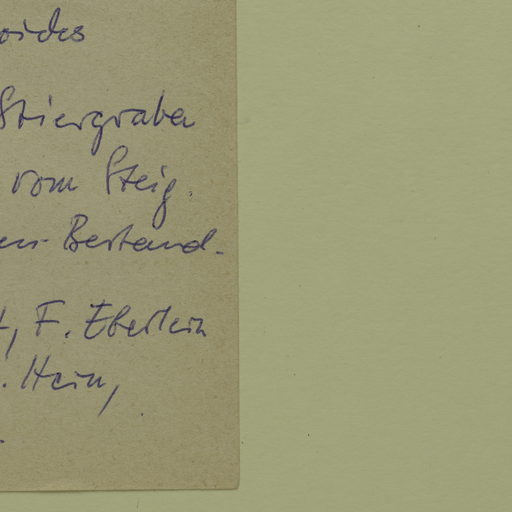 oides
Stiergraben
vom Steig.
en-Bestand-
t, F. Eberlein
. Hein,